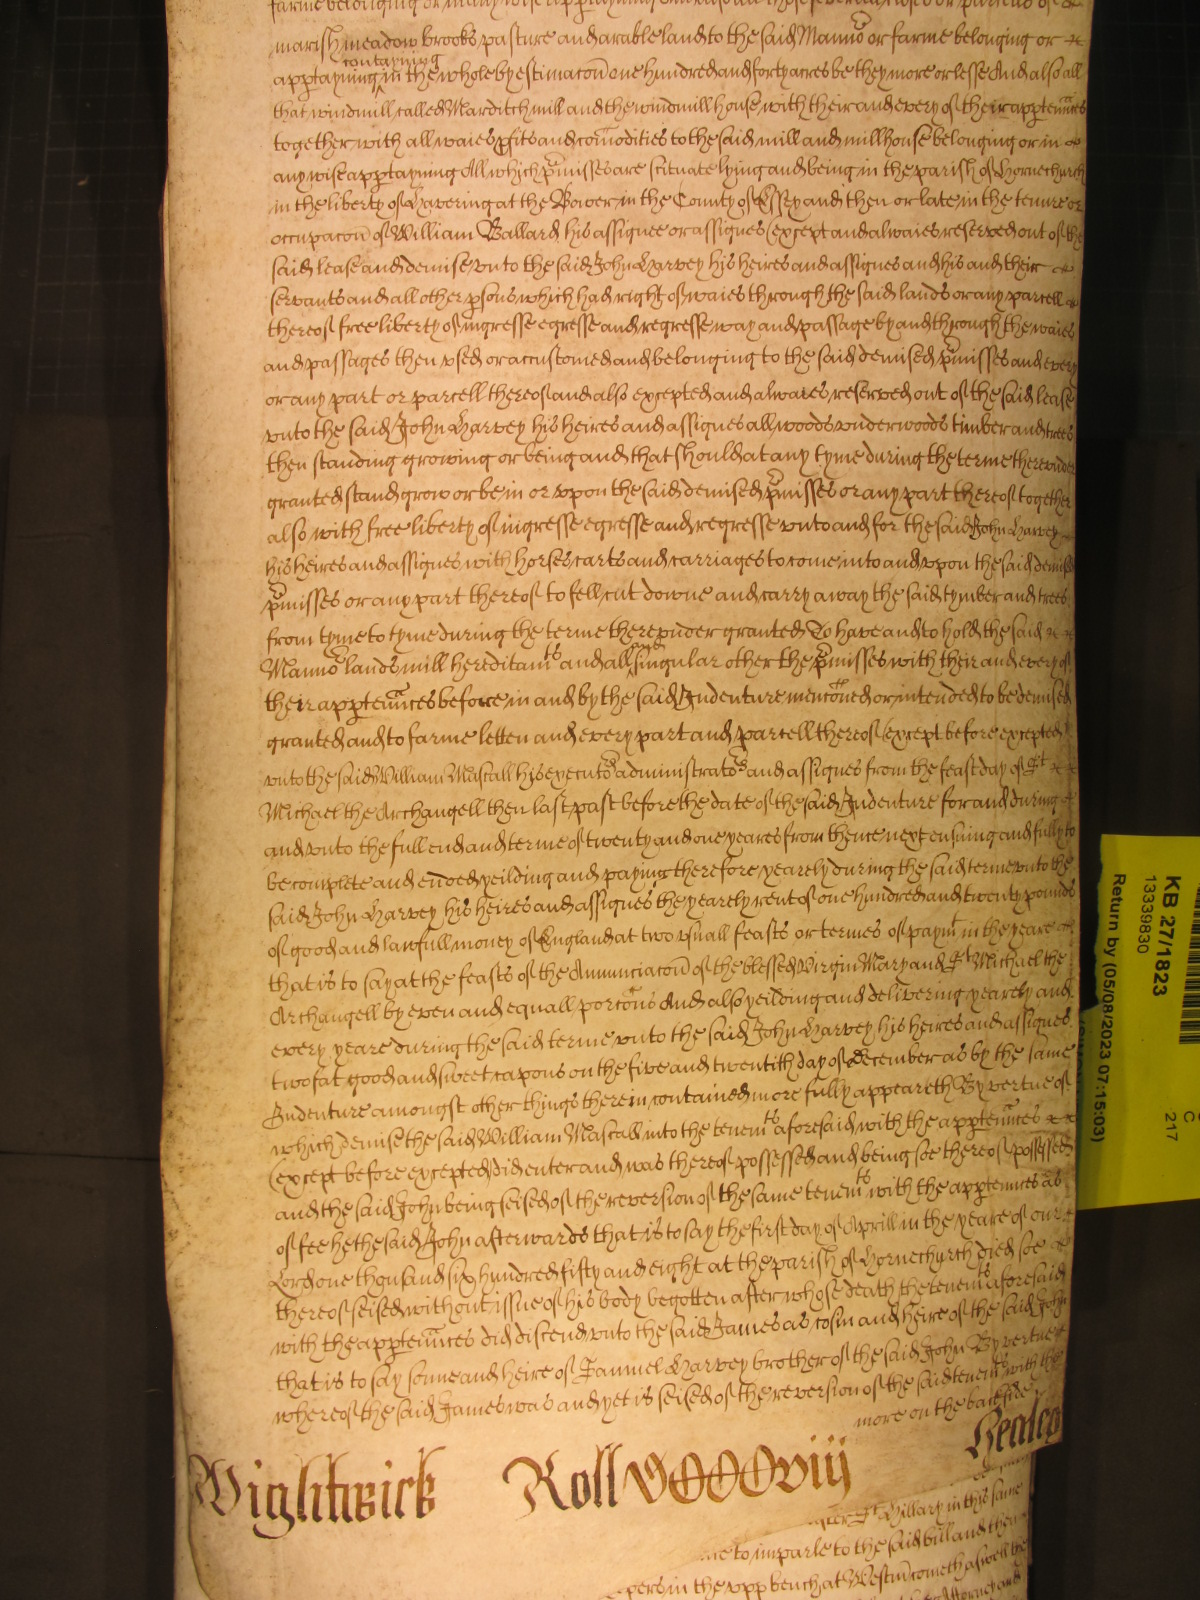 marish meadow brooks pasture and arable land to the said Manno^r or farme belonging or
contayning
apptayning in the whole by estimacon one hundred and forty acres be they more or lesse And also all
that windmill called Marditch mill and the windmill house with their and every of their apptennces
together with all waies pfits and comodities to the said mill and millhouse belonging or in
any wise apptayning All which pmisses are scituate lying and being in the parish of Hornechurch
in the liberty of Havering at the Bower in the County of Essex and then or late in the tenure or
occupacon of William Ballard his assignee or assignes (except and alwaies reserved out of the
said lease and demise vnto the said John Harvey his heires and assignes and his and their
servants and all other psons which had right of waies through the said lands or any parcell
thereof free liberty of ingresse egresse and regresse way and passage by and through the waies
and passages then vsed or accustomed and belonging to the said demised pmisses and every
or any part or parcell thereof and also excepted and alwaies reserved out of the said lease
vnto the said John Harvey his heires and assignes all woods vnderwoods timber and trees
then standing growing or being and that should at any tyme during the terme therevnder
granted stand grow or be in or vpon the said demised pmisses or any part thereof together
also with free liberty of ingresse egresse and regresse vnto and for the said John Harvey
his heires and assignes with horses carts and carriages to come into and vpon the said demised
pmisses or any part thereof to fell cut downe and carry away the said tymber and trees
from tyme to tyme during the terme therevnder granted To have and to hold the said
Manno^r lands mill hereditam^ts and all singular other the pmisses with their and every of
their apptennces before in and by the said Indenture menconed or intended to be demised
granted and to farme letten and every part and parcell thereof (except before excepted)
vnto the said William Mascall his executo^rs administrato^rs and assignes from the feast day of S^t
Michael the Archangell then last past before the date of the said Indenture for and during
and vnto the full end and terme of twenty and one yeares from thence next ensuing and fully to
be complete and ended yeilding and paying therefore yearely during the said terme vnto the
said John Harvey his heires and assignes the yearely rent of one hundred and twenty pounds
of good and lawfull money of England at two vsuall feasts or termes of paym^t in the yeare
that is to say at the feasts of the Annunciacon of the blessed Virgin Mary and S^t Michael the
Archangell by even and equall portons And also yeilding and delivering yearely and
every yeare during the said terme vnto the said John Harvey his heires and assignes
two fat good and sweet capons on the five and twentith day of december as by the same
Indenture amongst other things therein contained more fully appeareth By vertue of
which demise the said William Mascall into the tenem^ts aforesaid with the apptennces
(except before excepted) did enter and was thereof possessed and being soe thereof possessed
and the said John being seised of the reversion of the same tenem^ts with the apptennces as
of fee he the said John afterwards that is to say the first day of Aprill in the yeare of our
Lord one thousand six hundred fifty and eight at the parish of Hornechurch died soe
thereof seised without issue of his body begotten after whose death the tenem^ts aforesaid
with the apptennces did discend vnto the said James as cosin and heire of the said John
that is to say sonne and heire of Samuel Harvey brother of the said John By vertue
whereof the said James was and yet is seised of the reversion of the said tenem^ts with the
more on the backside
Wightwick Roll VXXXviij
after S^t Hillary in this same
me to imparle to the said bill and then
pers in the vpp bench at Westm cometh aswell the
KB 27/1823
13339830
Return by (05/08/2023 07:15:03)
217